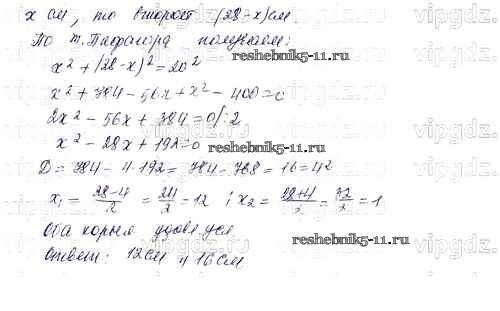 x см, то второй (28-x) см.
По т. Пифагора получаем:
x² + (28-x)² = 20²
reshebnik5-11.ru
x² + 784 - 56x + x² - 400 = 0
2x² - 56x + 384 = 0 |:2
x² - 28x + 192 = 0
D = 784 - 4·192 = 784 - 768 = 16 = 4²
x₁ = (28-4)/2 = 24/2 = 12 ; x₂ = (28+4)/2 = 32/2 = 1
Оба корня
reshebnik5-11.ru
Ответ: 12 см и 16 см
vipgdz.